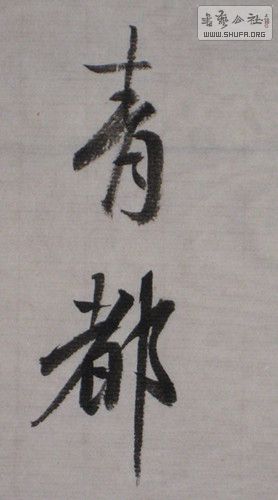 書藝公社
WWW.SHUFA.ORG
青都